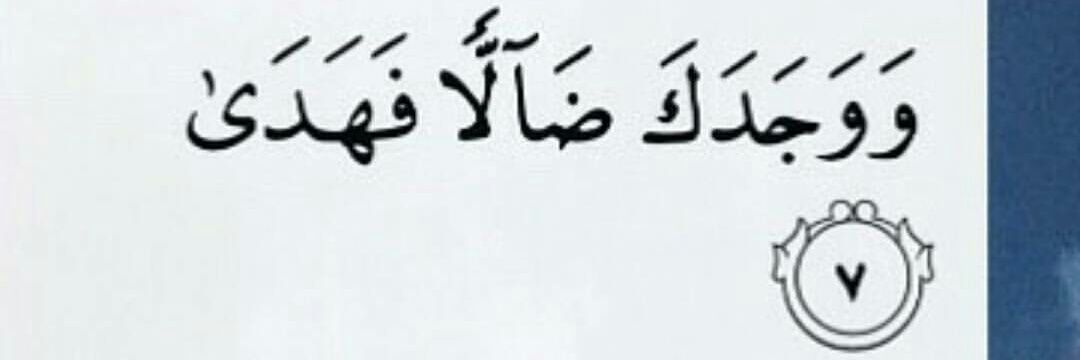 وَوَجَدَكَ ضَآلًّا فَهَدَىٰ
٧